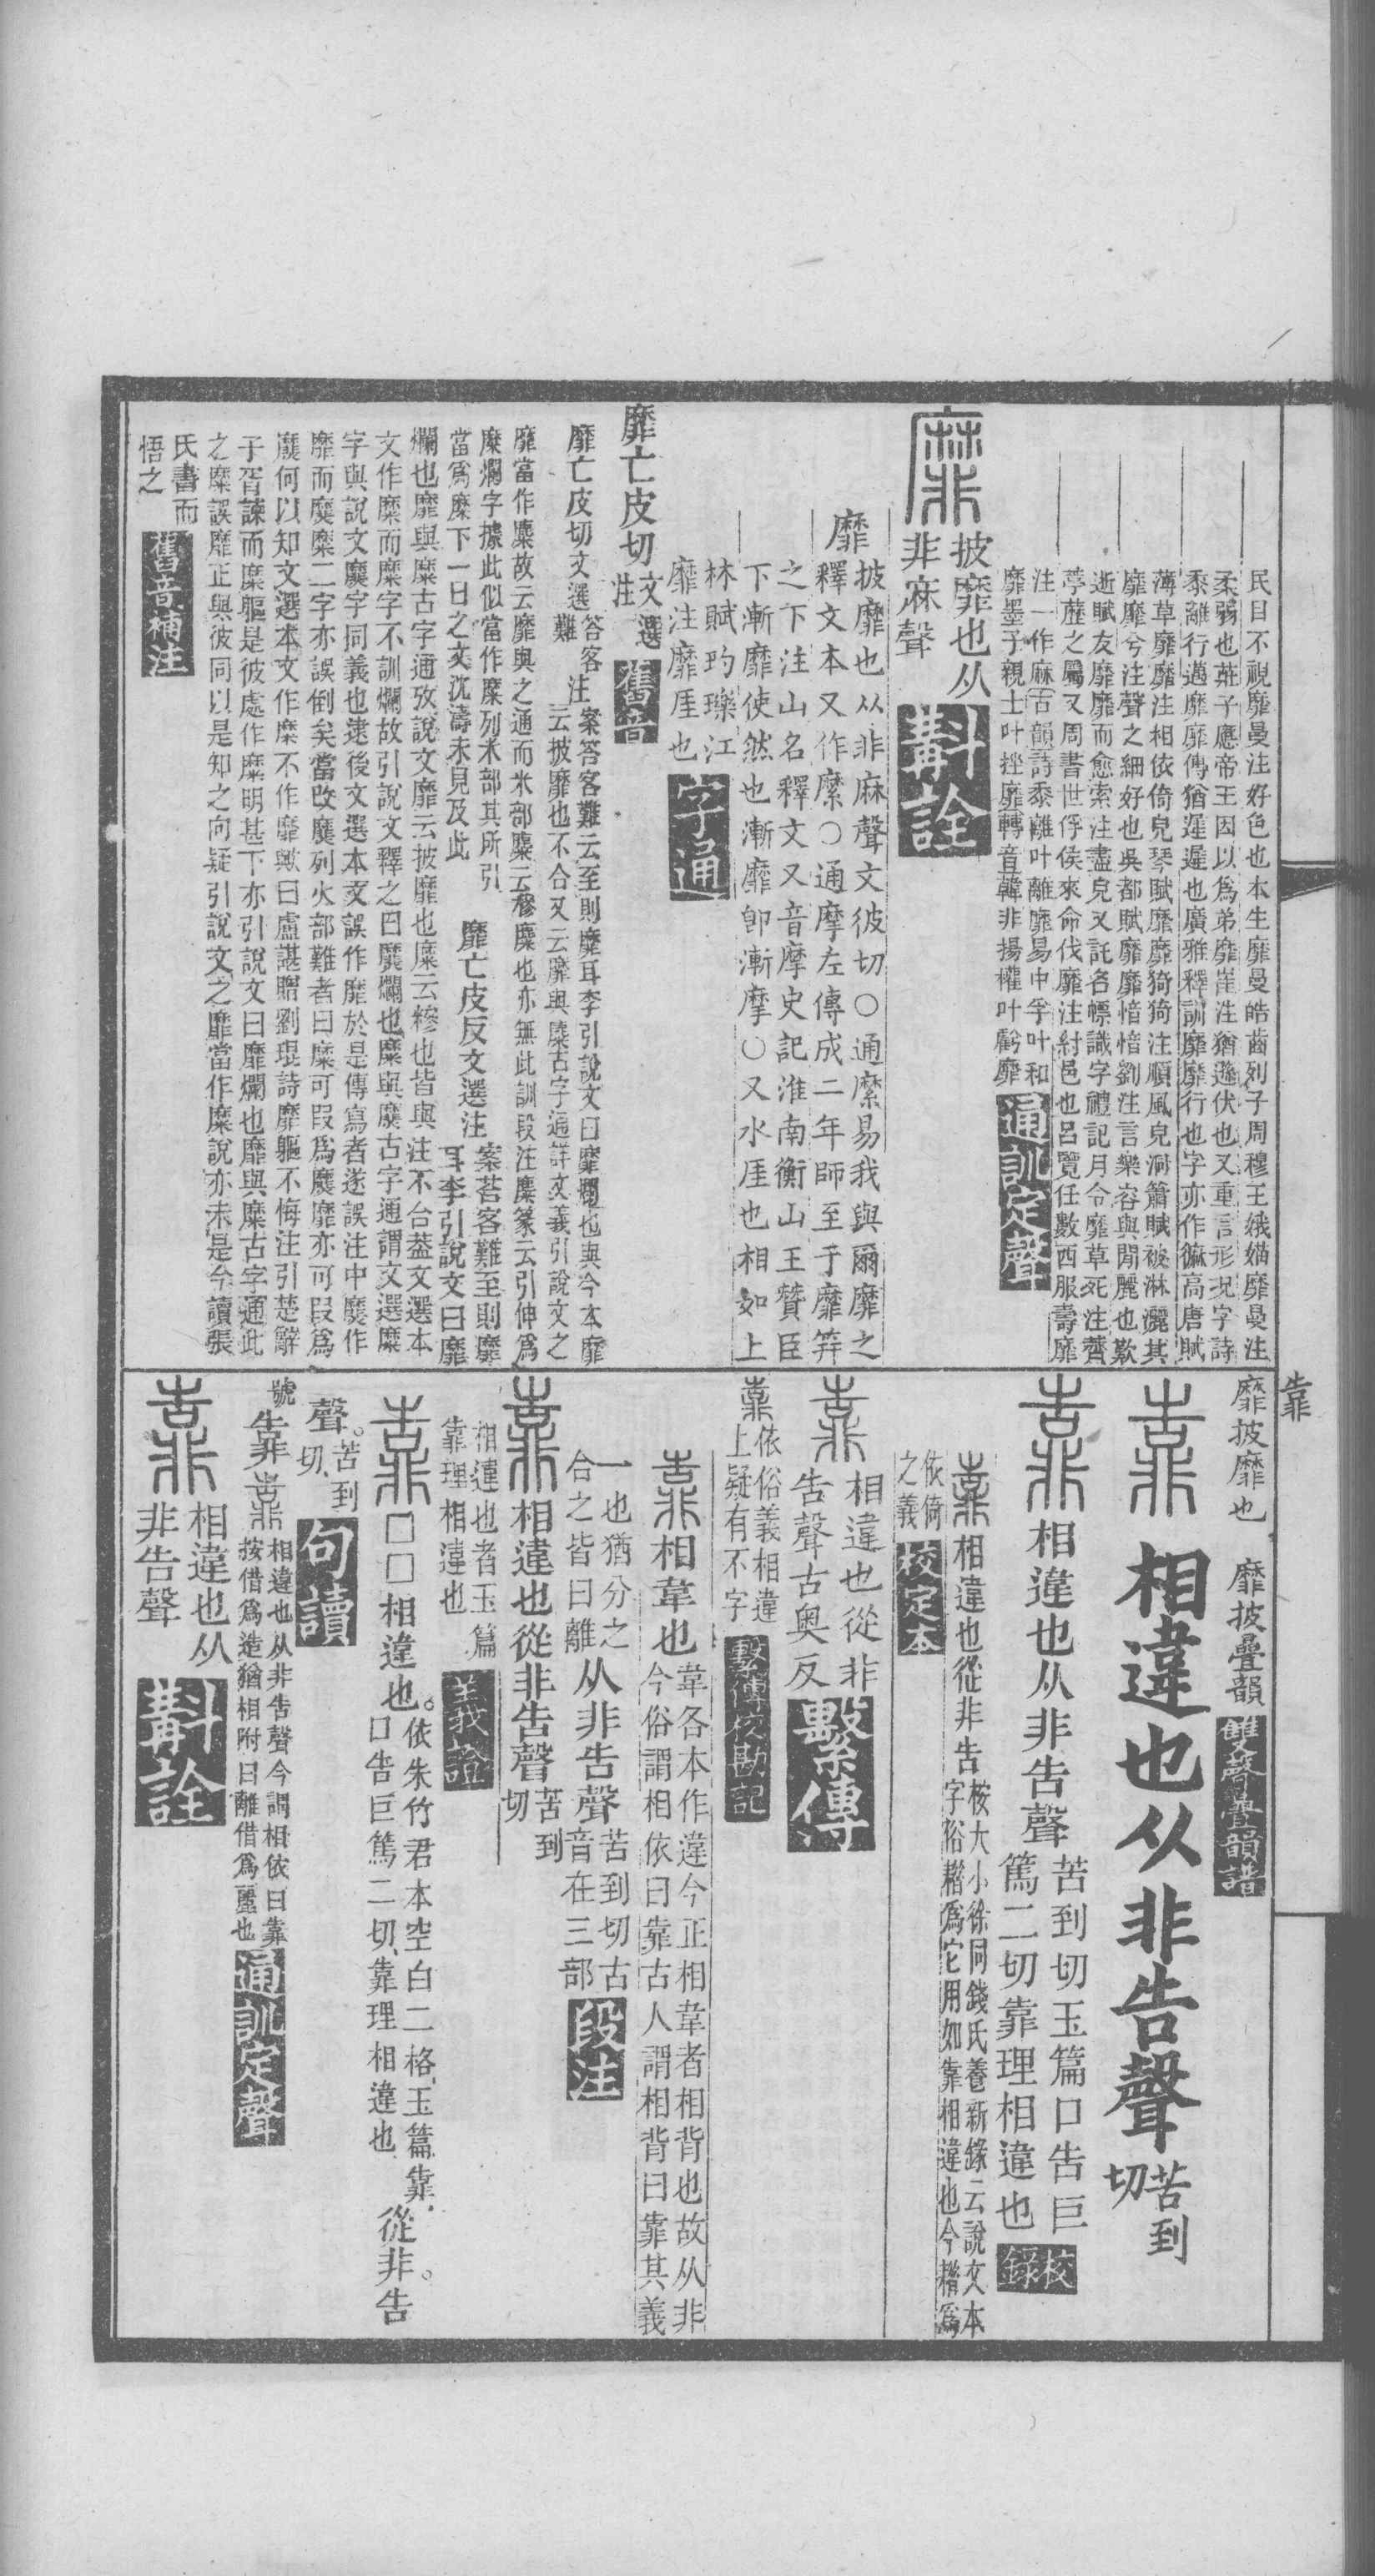 民目不視靡曼注好色也本生靡曼皓齒列子周穆王娥媌靡曼注
柔弱也莊子應帝王因以爲弟靡崔注猶遜伏也又重言形況字詩
黍離行邁靡靡傳猶遲遲也廣雅釋訓靡靡行也字亦作𢕟高唐賦
薄草靡靡注相依倚皃琴賦靡靡猗猗注順風皃洞簫賦被淋灑其
靡靡兮注聲之細好也吳都賦靡靡愔愔劉注言樂容與閒麗也歎
逝賦友靡靡而愈索注盡皃又託名幖識字禮記月令靡草死注薺
葶藶之屬又周書世俘侯來命伐靡注紂邑也呂覽任數西服壽靡
注一作麻古韻詩黍離叶離靡易中孚叶和
靡墨子親士叶挫靡轉音韓非揚權叶虧靡
通訓定聲
披靡也从
非𪎭聲
斠詮
靡
披靡也从非麻聲文彼切○通縻易我與爾靡之
釋文本又作縻○通摩左傳成二年師至于靡笄
之下注山名釋文又音摩史記淮南衡山王贊臣
下漸靡使然也漸靡卽漸摩○又水厓也相如上
林賦玓瓅江
靡注靡厓也
字通
靡亡皮切
文選
注
舊音
靡亡皮切文選
答客
難
注
案答客難云至則糜耳李引說文曰靡爛也與今本靡
云披靡也不合又云靡與糜古字通詳文義引說文之
靡當作糜故云靡與之通而米部糜云糝糜也亦無此訓段注糜篆云引伸爲
糜爛字據此似當作糜列米部其所引
當爲糜下一曰之文沈濤未見及此
靡亡皮反文選注
案荅客難至則靡
耳李引說文曰靡
爛也靡與糜古字通攷說文靡云披靡也糜云糝也皆與注不合葢文選本
文作糜而糜字不訓爛故引說文釋之曰𪎭爛也糜與𪎭古字通謂文選糜
字與說文𪎭字同義也逮後文選本文誤作靡於是傳寫者遂誤注中𪎭作
靡而𪎭糜二字亦誤倒矣當改𪎭列火部難者曰糜可叚爲𪎭靡亦可叚爲
𪎭何以知文選本文作糜不作靡歟曰盧諶贈劉琨詩靡軀不悔注引楚辭
子胥諫而糜軀是彼處作糜明甚下亦引說文曰靡爛也靡與糜古字通此
之糜誤靡正與彼同以是知之向疑引說文之靡當作糜說亦未是今讀張
氏書而
悟之
舊音補注
靠
靡披靡也　靡披疊韻
雙聲疊韻譜
相違也从非告聲
苦到
切
相違也从非告聲
苦到切玉篇口告巨
篤二切靠理相違也
校
錄
相違也從非告
桉大小徐同錢氏養新錄云說文本
字俗耤爲它用如靠相違也今耤爲
依倚
之義
校定本
相違也從非
告聲古奥反
繫傳
依俗義相違
上疑有不字
繫傳校勘記
相韋也
韋各本作違今正相韋者相背也故从非
今俗謂相依曰靠古人謂相背曰靠其義
一也猶分之
合之皆曰離
从非告聲
苦到切古
音在三部
段注
相違也從非告聲
苦到
切
相違也者玉篇
靠理相違也
義證
□□相違也。
依朱竹君本空白二格、玉篇靠、
口告巨篤二切、靠理相違也
從非。告
聲。
苦到
切、
句讀
號
靠
相違也从非告聲今謂相依曰靠
按借爲造猶相附曰離借爲麗也
通訓定聲
相違也从
非告聲
斠詮